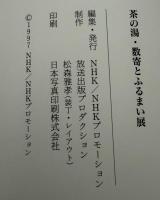 茶の湯・数寄とふるまい展
編集・発行
NHK／NHKプロモーション
制作
放送出版プロダクション
松森雅孝(装丁・レイアウト)
印刷
日本写真印刷株式会社
©1997 NHK／NHKプロモーション